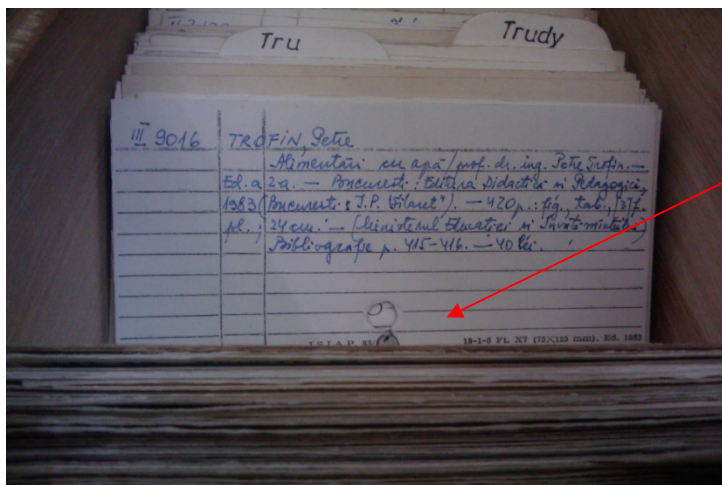 Tru
Trudy
III 9016 TROFIN, Petre
Alimentări cu apă / prof. dr. ing. Petre Trofin. —
Ed. a 2-a. — Bucureşti : Editura Didactică şi Pedagogică,
1983 (Bucureşti : I.P. "Filaret"). — 420 p. : fig., tab., [3] f.
pl. ; 24 cm. — (Ministerul Educaţiei şi Învăţămîntului)
Bibliografie p. 415-416. — 40 lei.
19-1-6 Ft. X7 (75X125 mm). Ed.